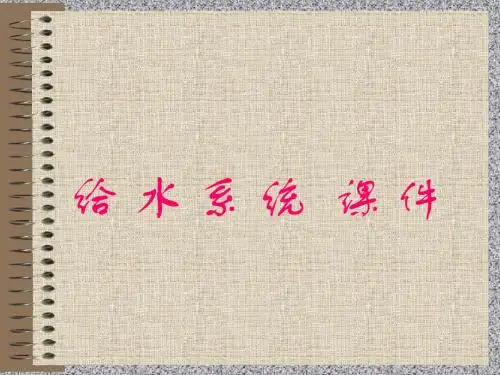 给水系统 课件